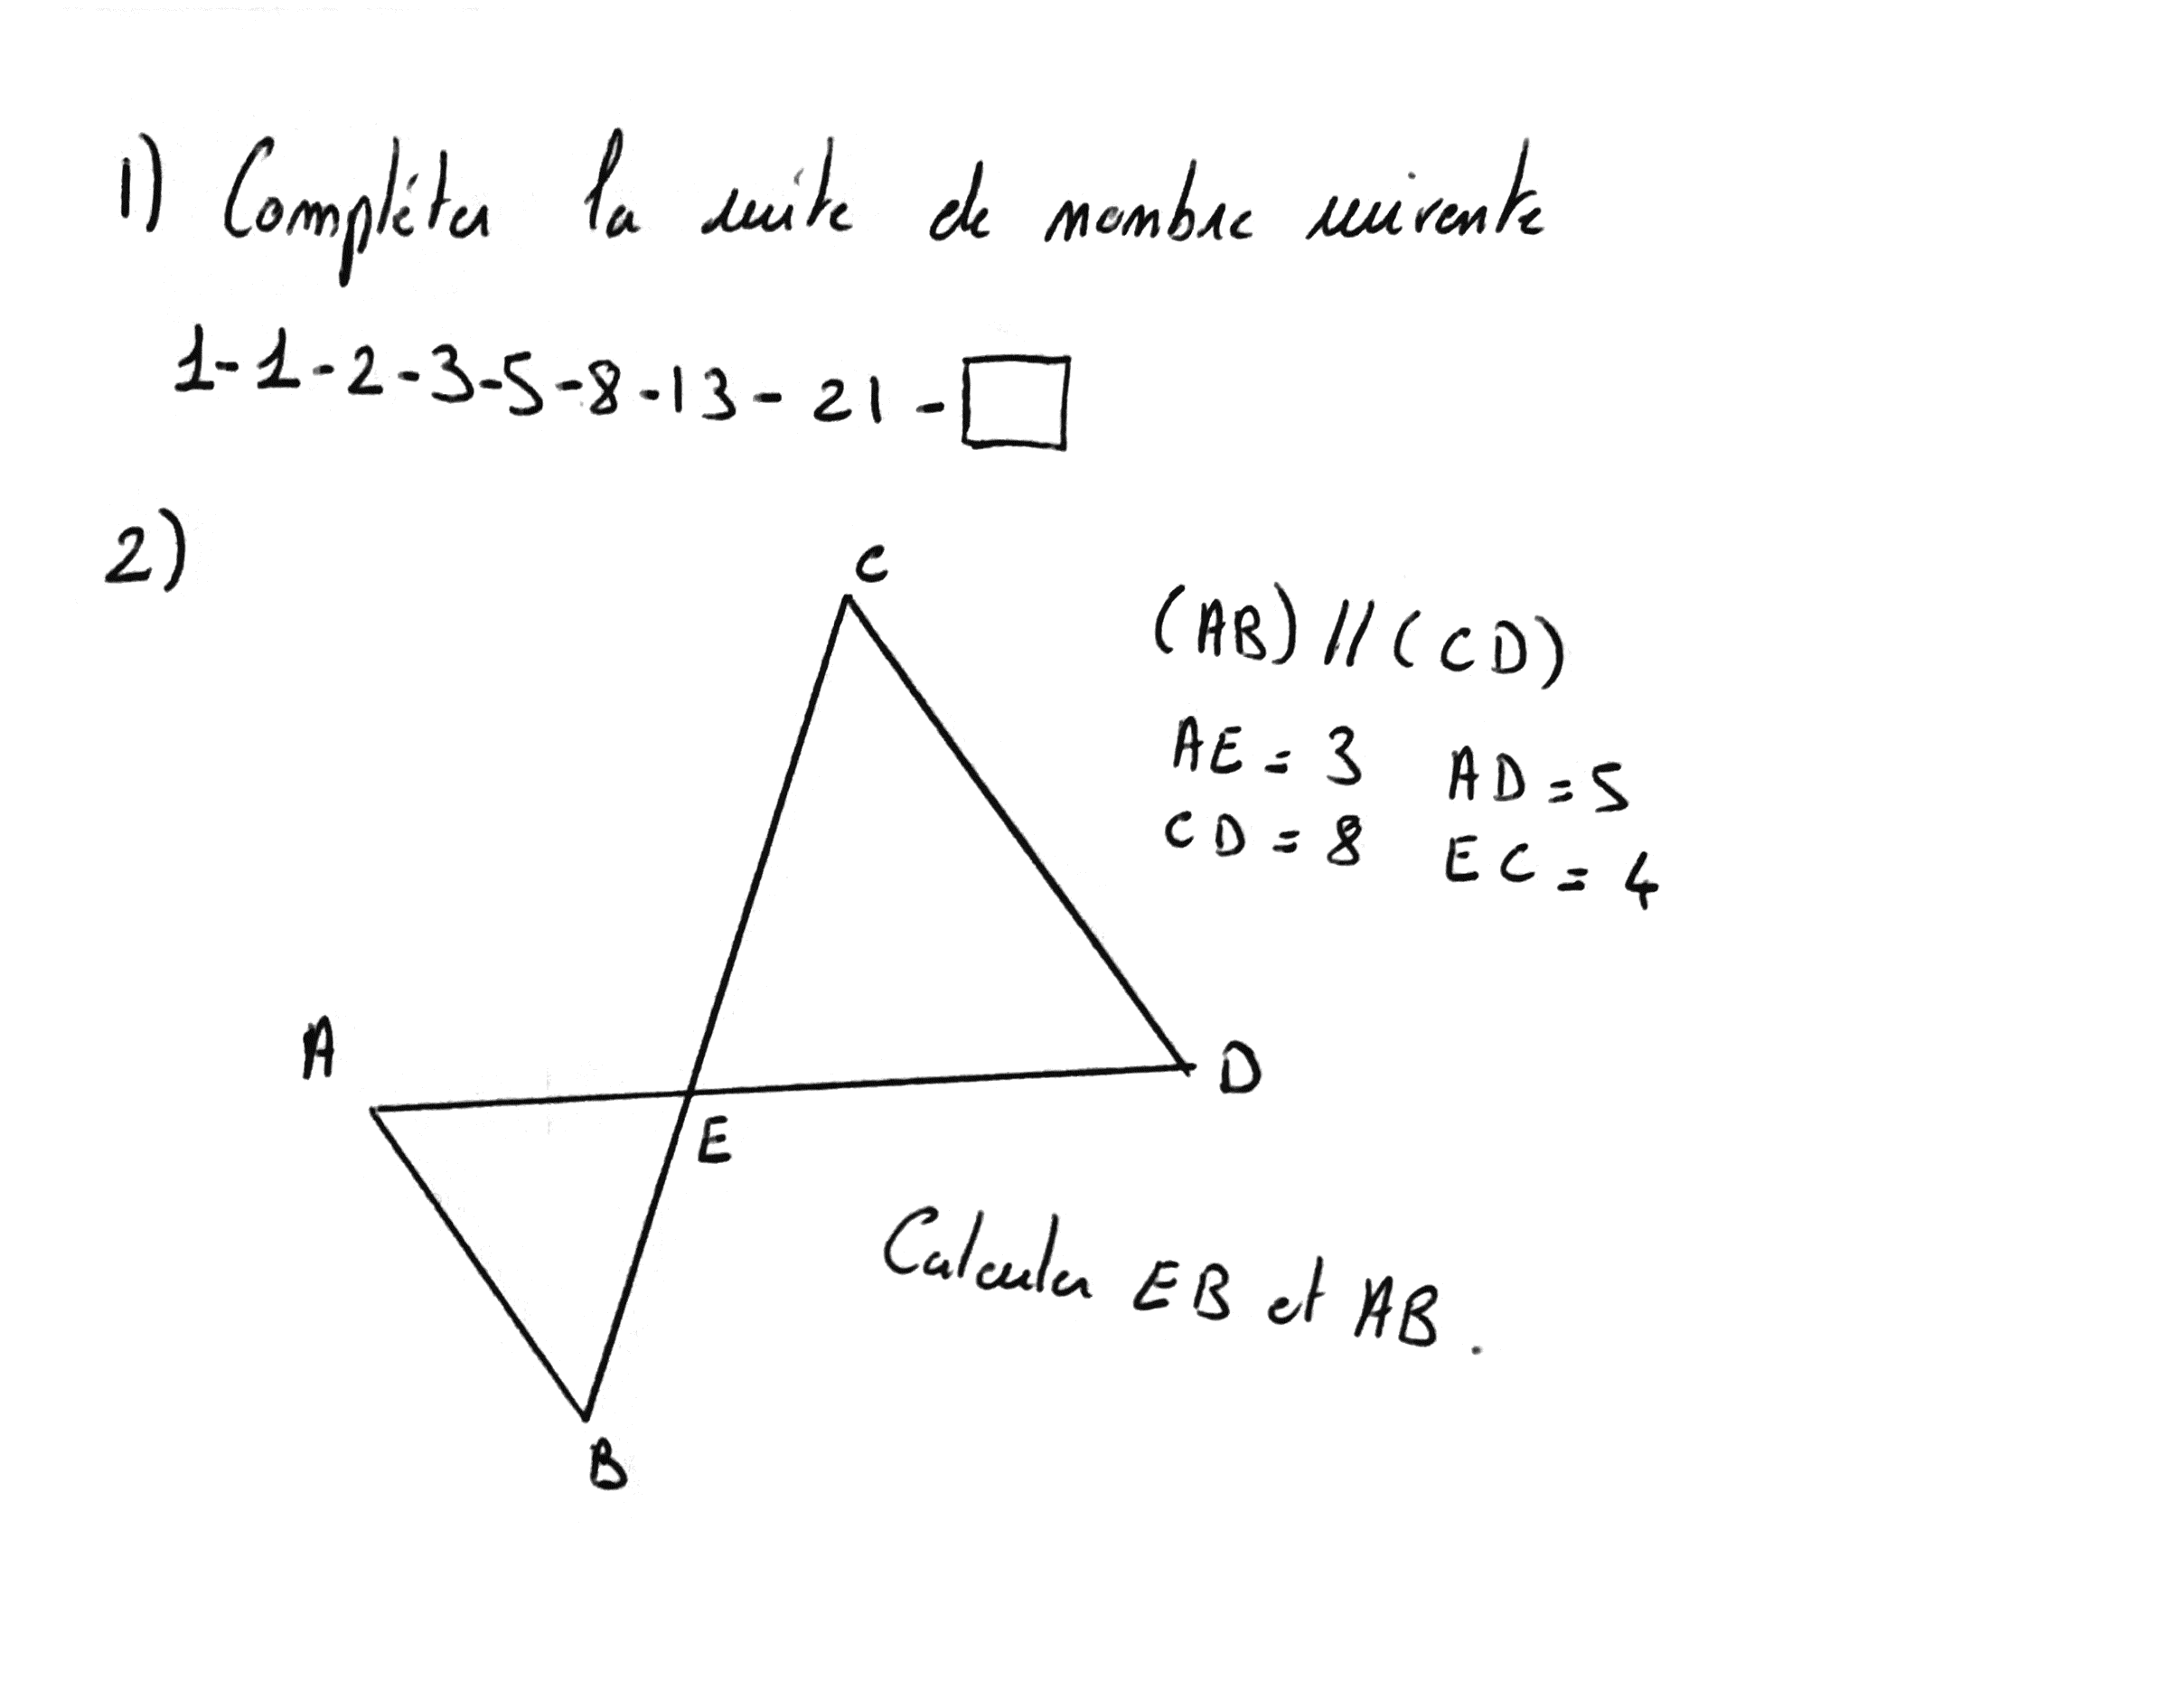 1) Compléter la suite de nombre suivante
1-1-2-3-5-8-13-21-
2)
C
(AB)//(CD)
AE = 3 AD = 5
CD = 8 EC = 4
A
D
E
Calculer EB et AB.
B